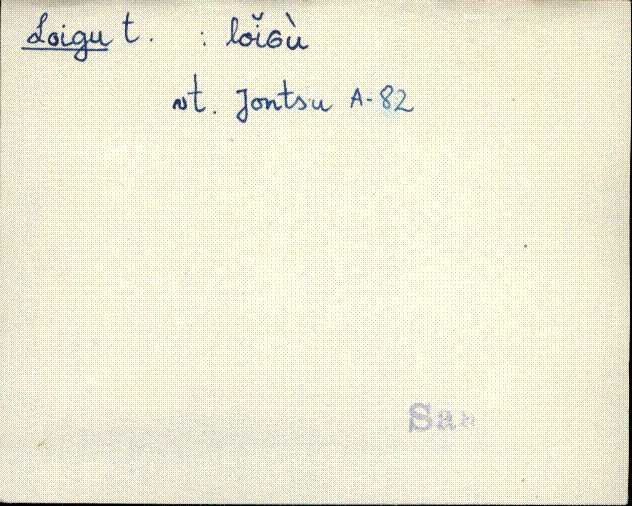 Loigu t. : lŏĭɢù
vt. Jontsu A-82